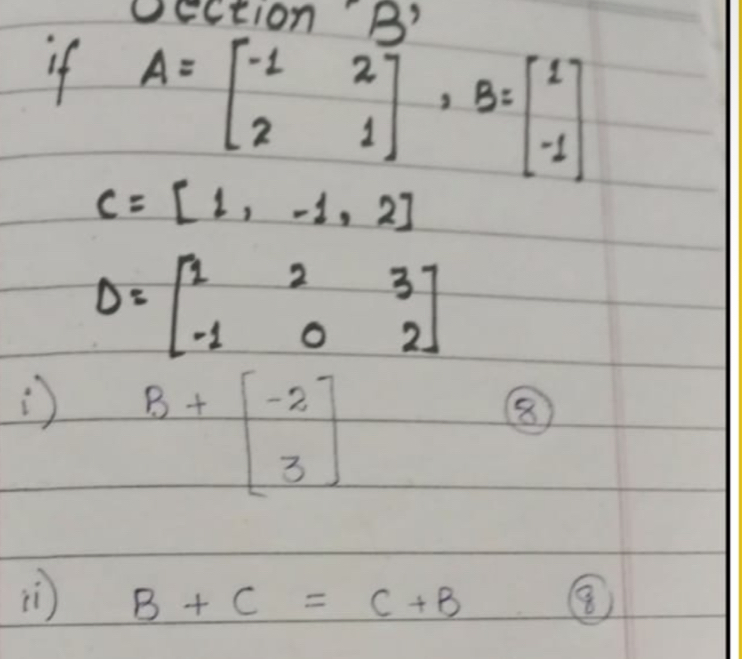 Section 'B'
if A = [-1 2
2 1] , B = [1
-1]
C = [1, -1, 2]
D = [1 2 3
-1 0 2]
i) B + [-2
3] 8
ii) B + C = C + B 8